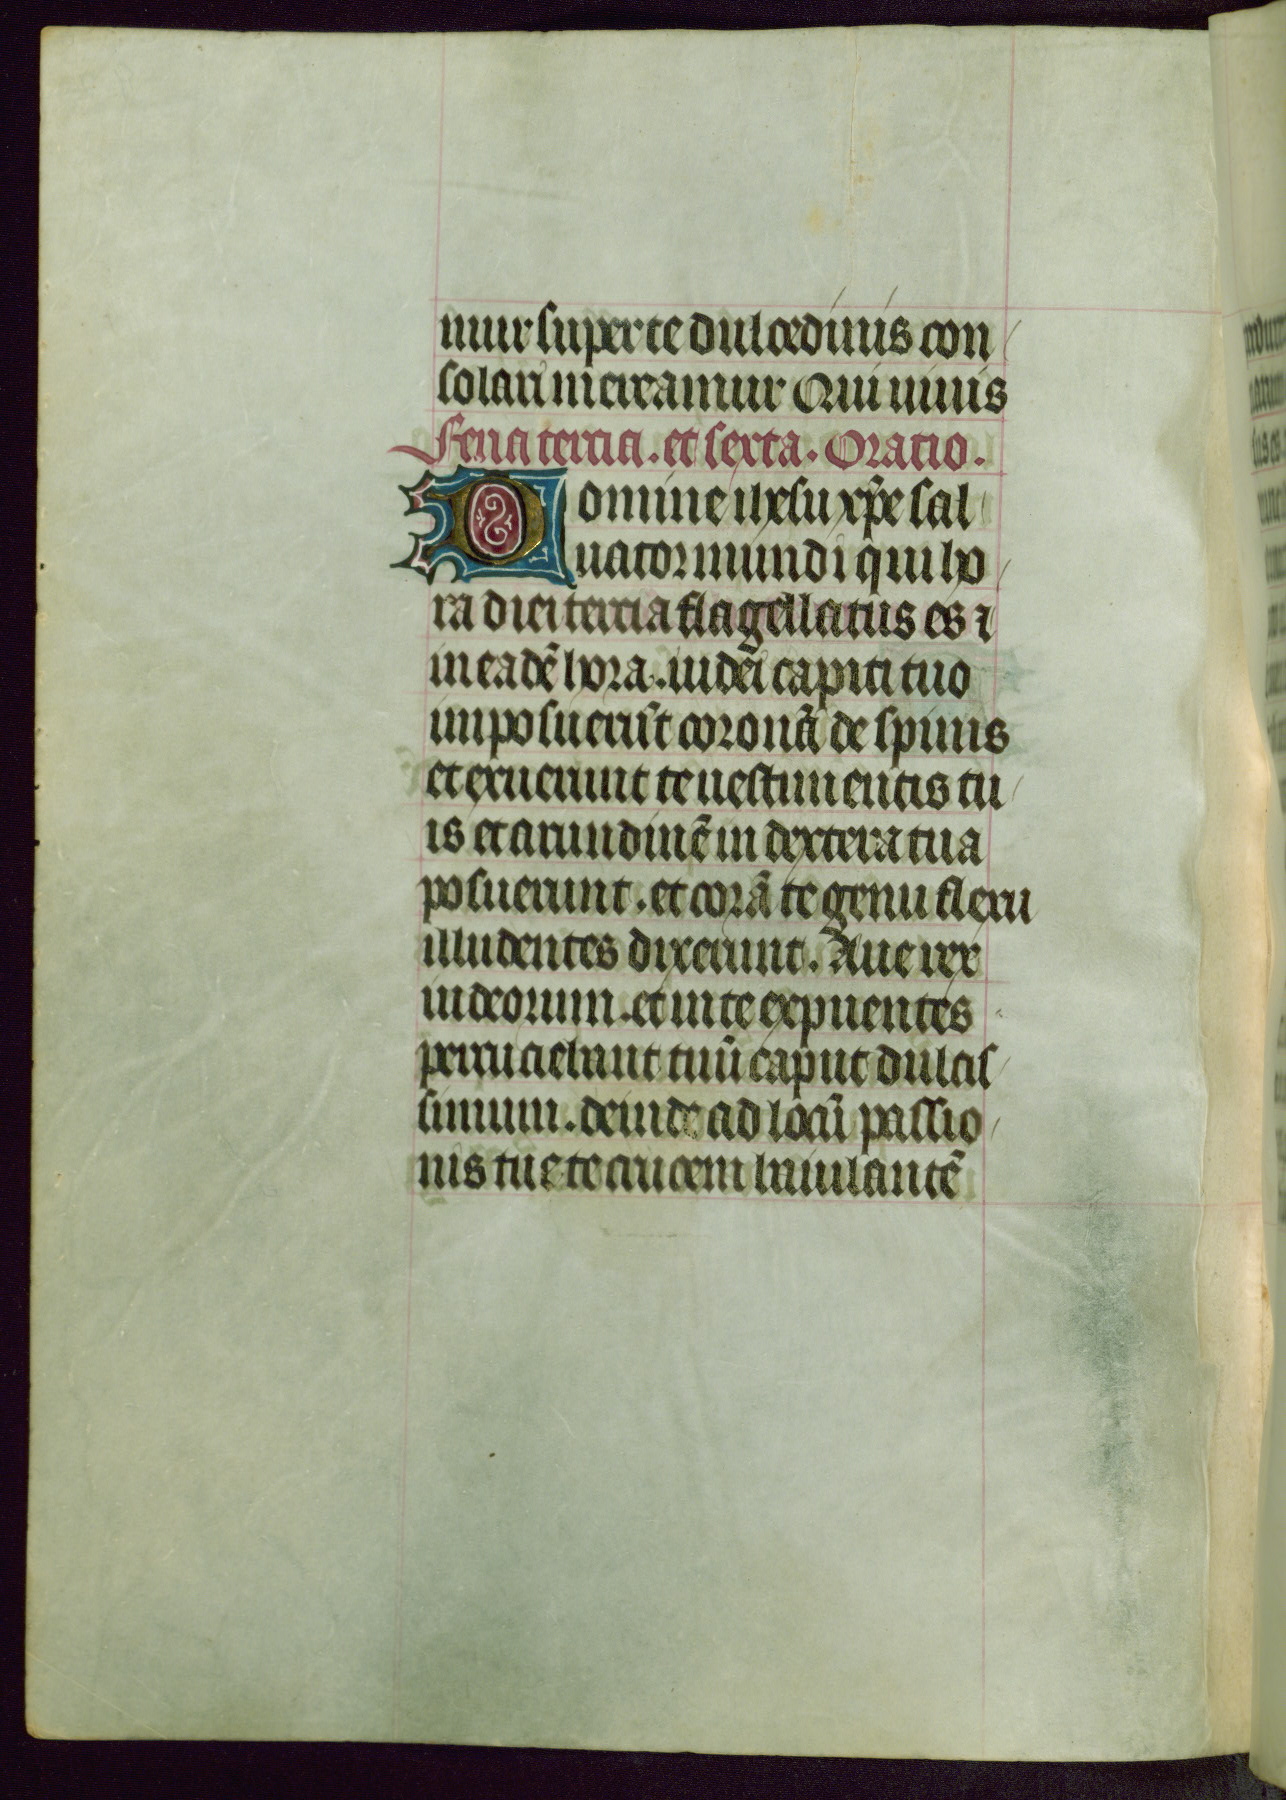 mur super te dulcedinis con
solari mereamur Qui uiuis
Feria tercia. et sexta. Oratio.
Domine ihesu xp̄e sal
uator mundi qui ho
ra diei tercia flagellatus es ⁊
in eadē hora. iudei capiti tuo
imposuerūt coronā de spinis
et exuerunt te uestimentis tu
is et arundinē in dextera tua
posuerunt. et corā te genu flexu
illudentes dixerunt. Aue rex
iudeorum. et in te expuentes
percuciebant tuū caput dulcis
simum. deinde ad locū passio
nis tue te crucem baiulantē